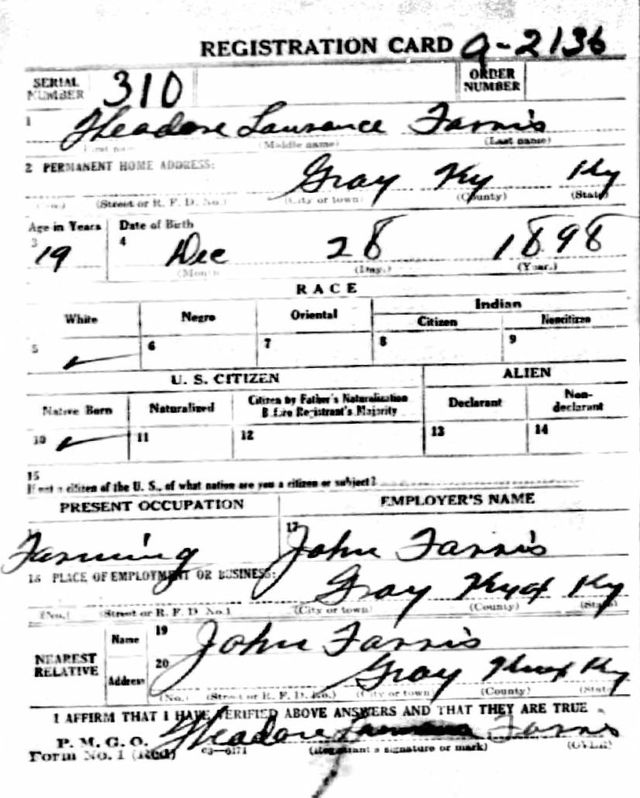 REGISTRATION CARD 9-2136
SERIAL NUMBER 310 ORDER NUMBER
1 Theodore Laurance Farris
(First name) (Middle name) (Last name)
2 PERMANENT HOME ADDRESS: Gray Ky Ky
(No.) (Street or R. F. D. No.) (City or town) (County) (State)
Age in Years Date of Birth
3 19 4 Dec 28 1898
(Month) (Day.) (Year.)
RACE
White Negro Oriental Indian
Citizen Noncitizen
5 ✓ 6 7 8 9
U. S. CITIZEN ALIEN
Native Born Naturalized Citizen by Father's Naturalization Before Registrant's Majority Declarant Non-declarant
10 ✓ 11 12 13 14
15
If not a citizen of the U. S., of what nation are you a citizen or subject?
PRESENT OCCUPATION EMPLOYER'S NAME
Farming 17 John Farris
18 PLACE OF EMPLOYMENT OR BUSINESS: Gray Knox Ky
(No.) (Street or R. F. D. No.) (City or town) (County) (State)
NEAREST RELATIVE Name 19 John Farris
Address 20 Gray Knox Ky
(No.) (Street or R. F. D. No.) (City or town) (County) (State)
I AFFIRM THAT I HAVE VERIFIED ABOVE ANSWERS AND THAT THEY ARE TRUE
P. M. G. O.
Form No. 1 (Red) 03—6171 Theodore Farris
(Registrant's signature or mark) (OVER)